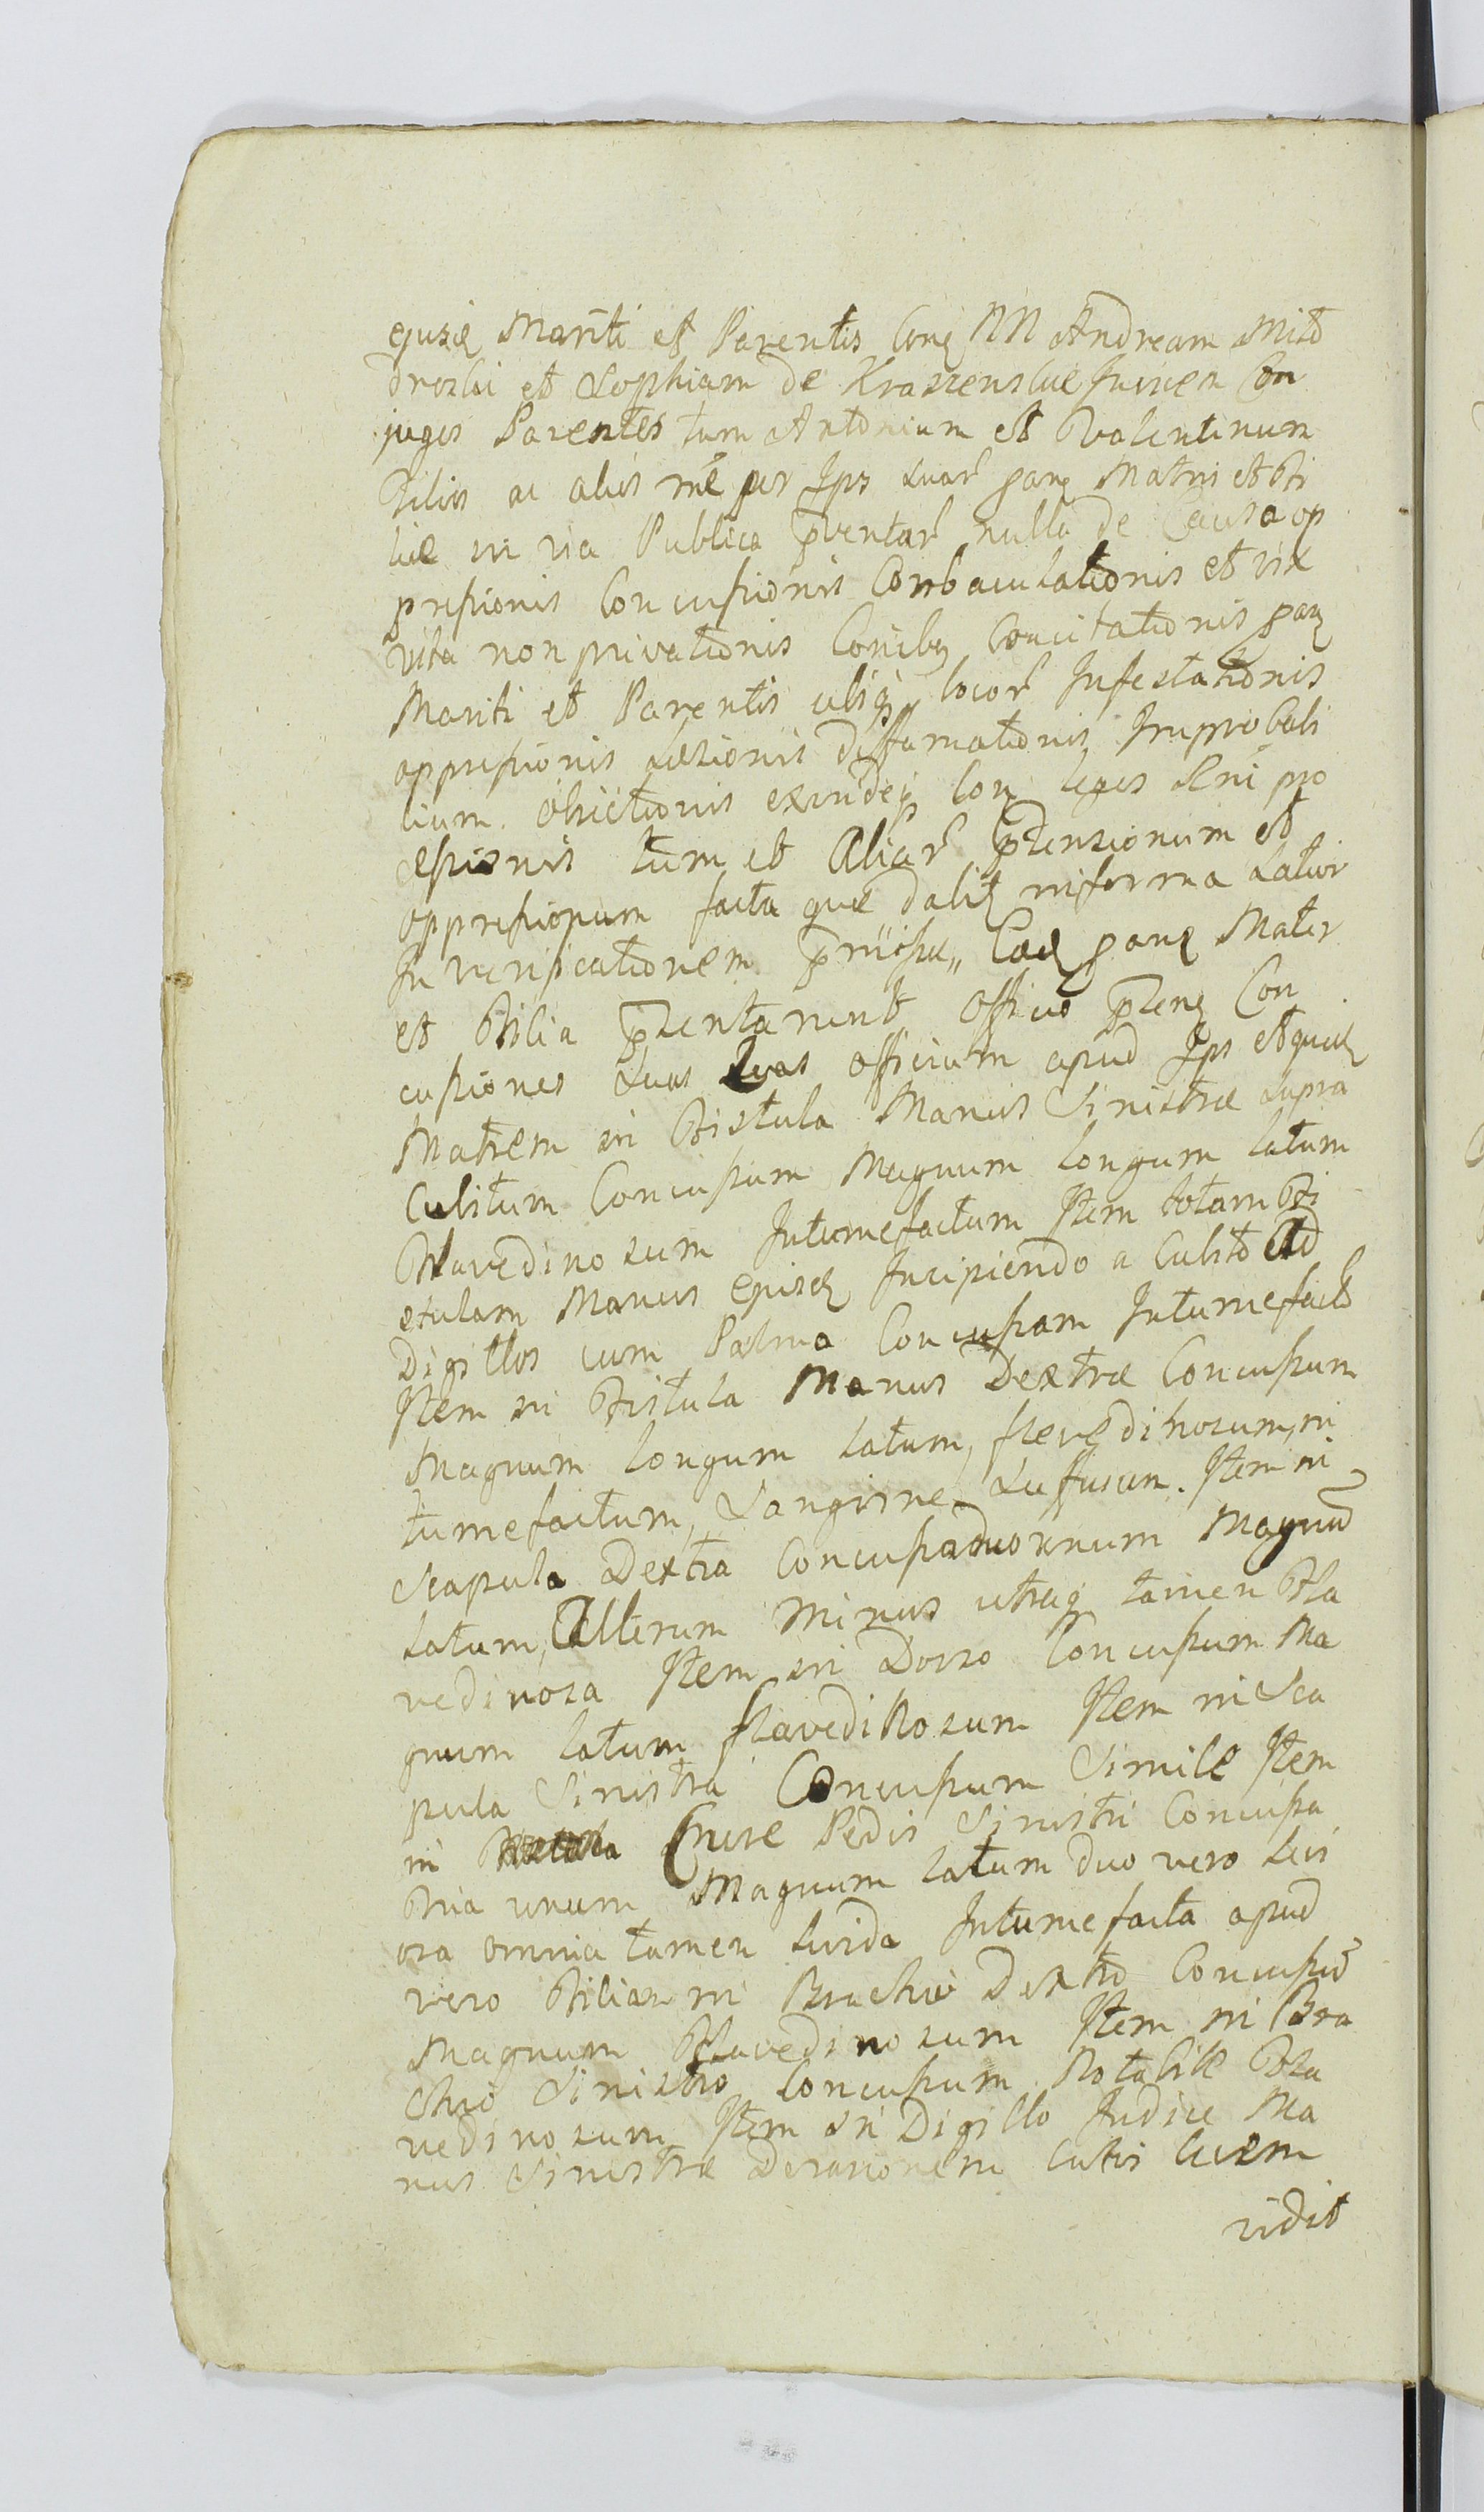 ejusq Mariti et Parentis conq NN Andream Mito
droski et Sophiam de Kraszenskie Invicem Con
juges Parentes tum Antonium et Valentinum
Filios ac alios rne per Ips suar pang Matris et Fi
liæ in via Publica pventar nulla de Causa op
pressionis Concussionis Conbaculationis et vix
vita non privationis Conciby Concitationis panq
Mariti et Parentis aliisq locor Infestationis
oppressionis Læsionis diffamationis Improbabi
lium Obiictionis exindeq con leges Seni pro
cessionis tum et Aliar ptensionum et
oppressionum facta que dalitz in forma Latior
In verificationem prmissor Eæd panq Mater
et Filia pntarunt Officio pnt Con
cussiones Suas Quas officium apud Ips et quid
Matrem in Fistula Manus Sinistræ supra
Cubitum Concussum Magnum longum latum
Flavedinosum Intumefactum Item totam Fi
stulam Manus ejusd Incipiendo a Cubito Ad
Digittos cum Palma Concussam Intumefact
Item in Fistula Manus Dextræ Concussum
Magnum longum latum, flavedinosum, in
tumefactum, Sangvine Suffusum. Item in
Scapula Dextra Concussa duo unum Magnu
latum, Alterum Minus utraq tamen Fla
vedinosa Item in Dorso Concussum Ma
gnum latum flavedinosum Item in Sca
pula Sinistra Concussum Simile Item
in Crure Pedis Sinistri Concussa
tria unum Magnum latum duo vero levi
ora omnia tamen livida Intumefacta apud
vero Filiam in Brachio Dextro Concussu
Magnum Flavedinosum Item in Bra
chio Sinistro Concussum Notabile Fla
vedinosum Item in Digitto Indice Ma
nus Sinistræ Derasionem Cutis livem
vidit